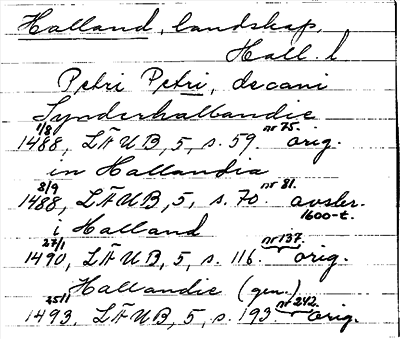 Halland, landskap,
Hall. l
Petri Petri, decani
Synderhallandie
1/8 1488, LÄUB, 5, s. 59. nr 75. orig.
in Hallandia
8/9 1488, LÄUB, 5, s. 70. nr 81. avskr. 1600-t.
i Halland
27/1 1490, LÄUB, 5, s. 116. nr 137. orig.
Hallandie (gen.)
25/1 1493, LÄUB, 5, s. 193. nr 242. orig.